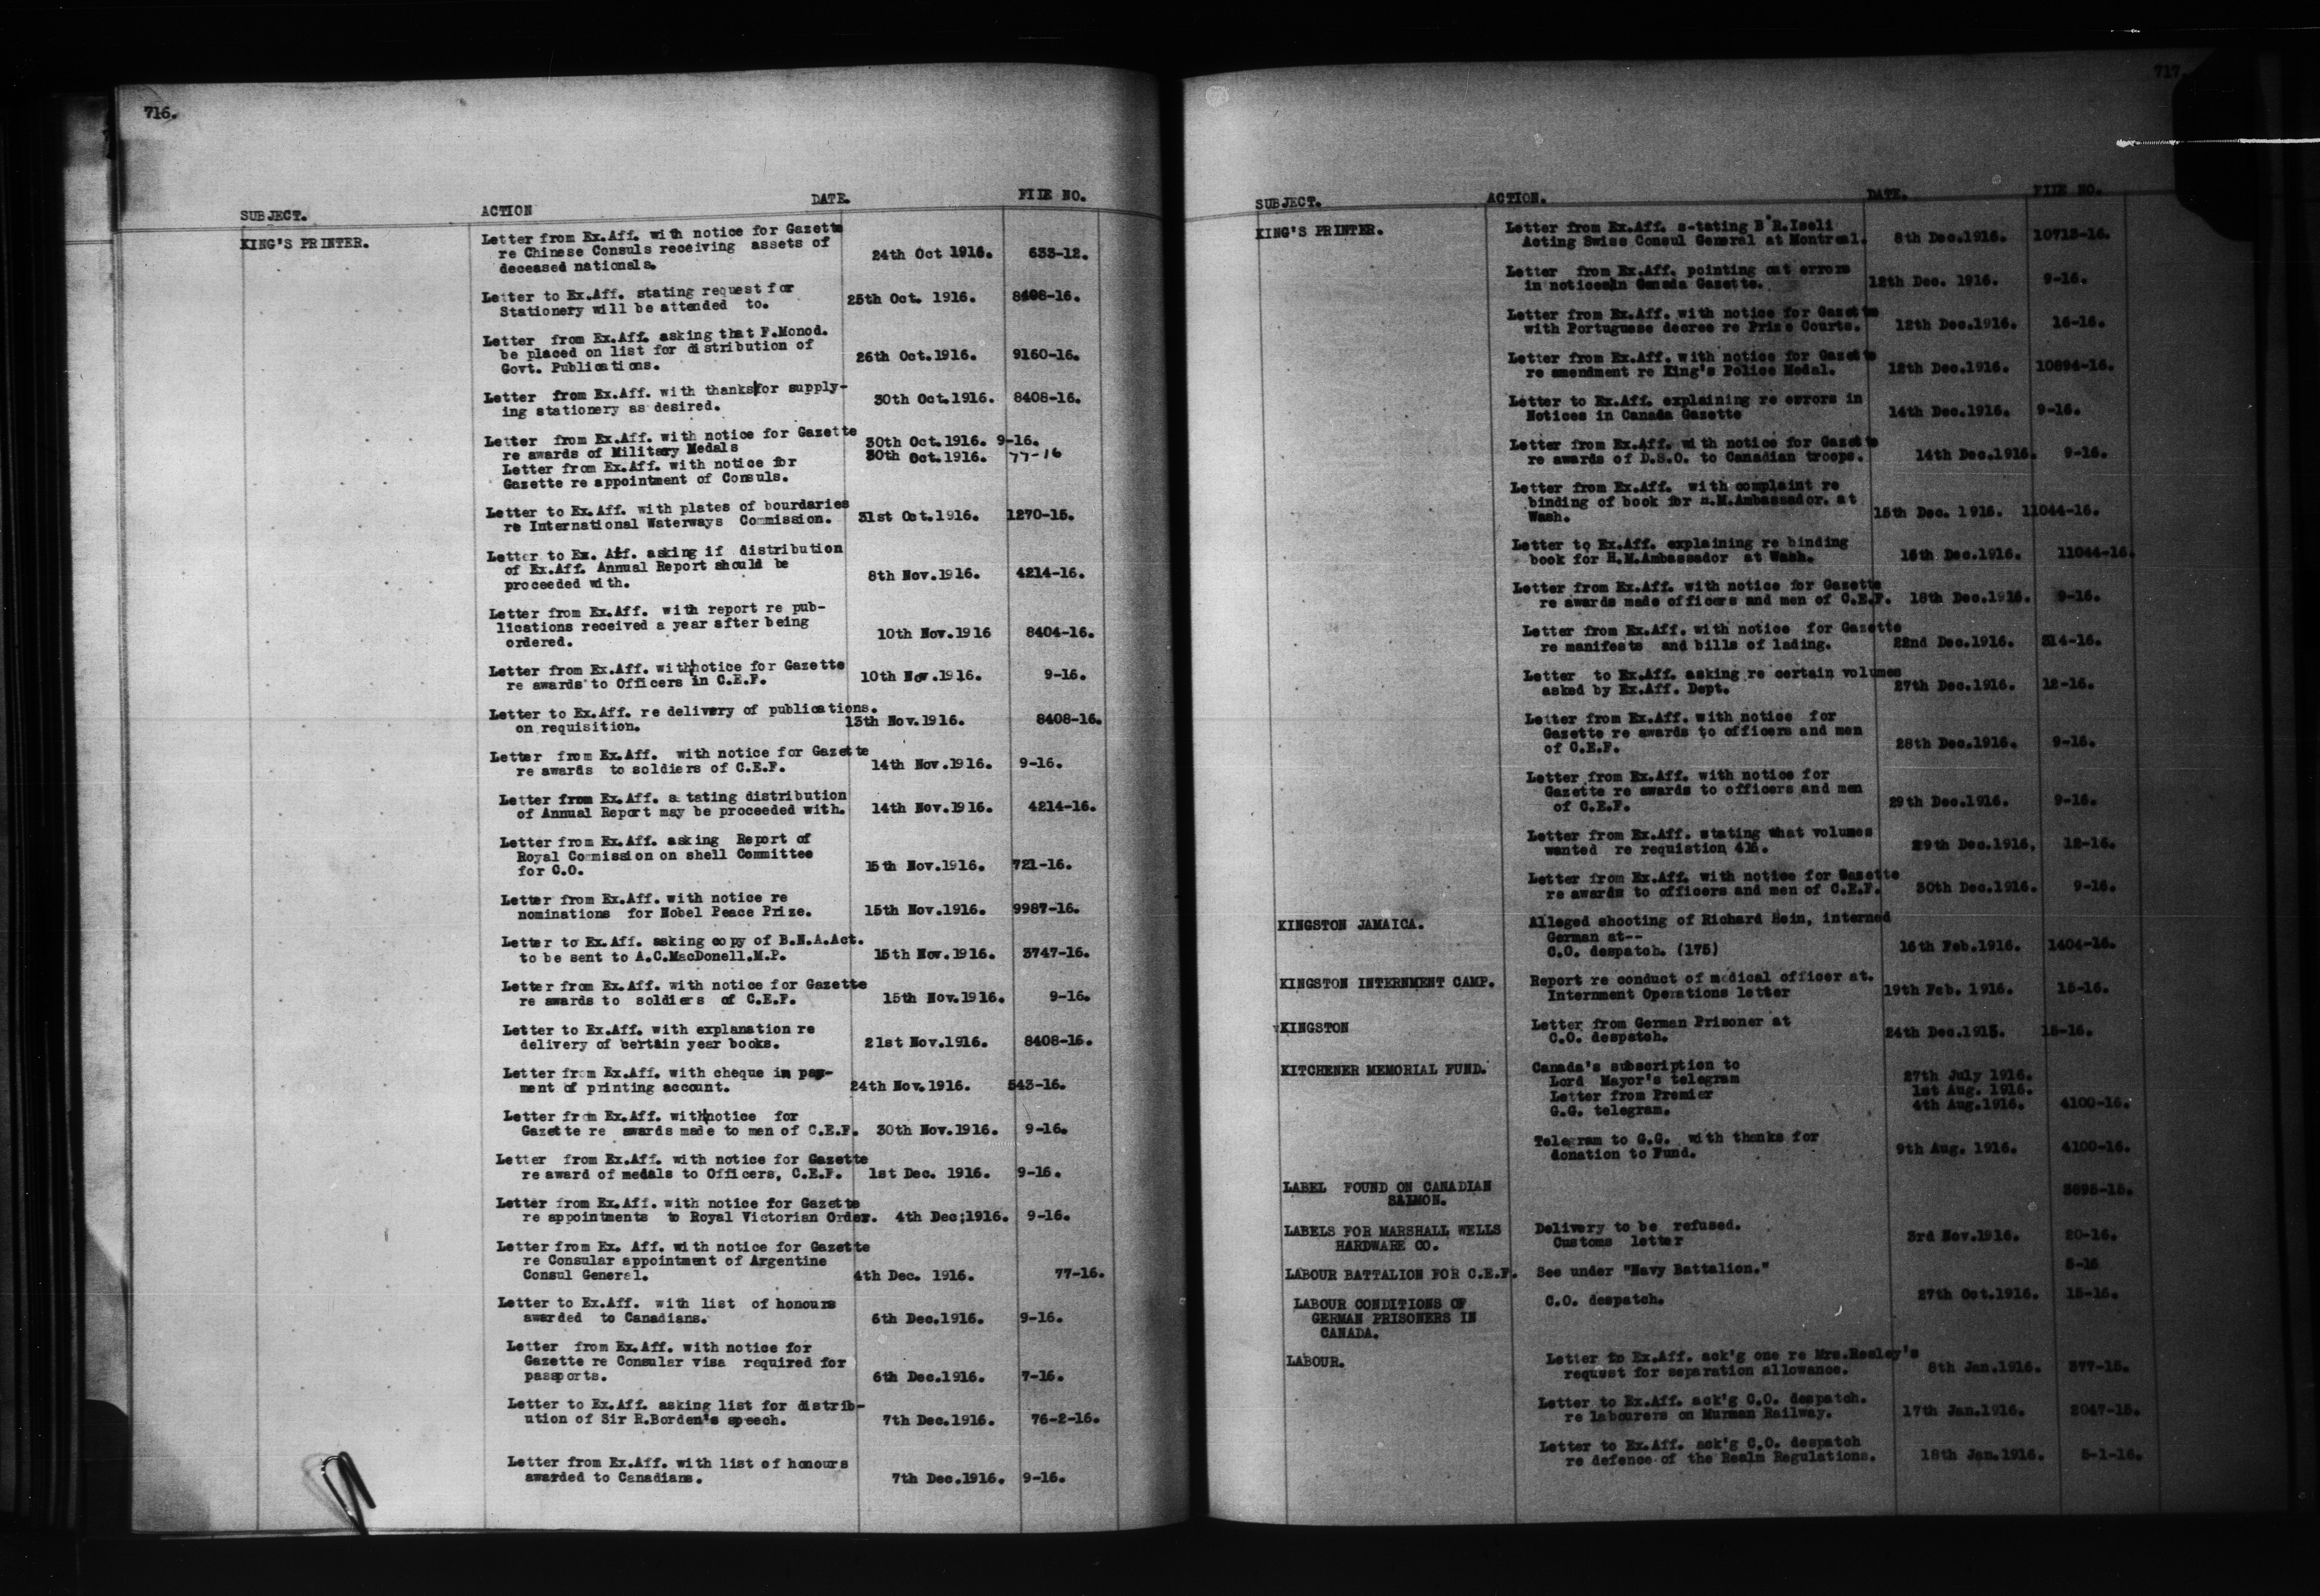 716.
SUBJECT. ACTION DATE. FILE NO.
KING'S PRINTER. Letter from Ex.Aff. with notice for Gazette
re Chinese Consuls receiving assets of
deceased nationals. 24th Oct 1916. 633-12.
Letter to Ex.Aff. stating request for
Stationery will be attended to. 25th Oct. 1916. 8408-16.
Letter from Ex.Aff. asking that F.Monod.
be placed on list for distribution of
Govt. Publications. 26th Oct.1916. 9160-16.
Letter from Ex.Aff. with thanks for supply-
ing stationery as desired. 30th Oct.1916. 8408-16.
Letter from Ex.Aff. with notice for Gazette
re awards of Military Medals 30th Oct.1916. 9-16.
Letter from Ex.Aff. with notice for 30th Oct.1916. 77-16
Gazette re appointment of Consuls.
Letter to Ex.Aff. with plates of boundaries
re International Waterways Commission. 31st Oct.1916. 1270-15.
Letter to Ex. Aff. asking if distribution
of Ex.Aff. Annual Report should be
proceeded with. 8th Nov.1916. 4214-16.
Letter from Ex.Aff. with report re pub-
lications received a year after being
ordered. 10th Nov.1916 8404-16.
Letter from Ex.Aff. with notice for Gazette
re awards to Officers in C.E.F. 10th Nov.1916. 9-16.
Letter to Ex.Aff. re delivery of publications.
on requisition. 13th Nov.1916. 8408-16.
Letter from Ex.Aff. with notice for Gazette
re awards to soldiers of C.E.F. 14th Nov.1916. 9-16.
Letter from Ex.Aff. stating distribution
of Annual Report may be proceeded with. 14th Nov.1916. 4214-16.
Letter from Ex.Aff. asking Report of
Royal Commission on shell Committee
for C.O. 15th Nov.1916. 721-16.
Letter from Ex.Aff. with notice re
nominations for Nobel Peace Prize. 15th Nov.1916. 9987-16.
Letter to Ex.Aff. asking copy of B.N.A.Act.
to be sent to A.C.MacDonell.M.P. 15th Nov.1916. 3747-16.
Letter from Ex.Aff. with notice for Gazette
re awards to soldiers of C.E.F. 15th Nov.1916. 9-16.
Letter to Ex.Aff. with explanation re
delivery of certain year books. 21st Nov.1916. 8408-16.
Letter from Ex.Aff. with cheque in pay-
ment of printing account. 24th Nov.1916. 543-16.
Letter from Ex.Aff. with notice for
Gazette re awards made to men of C.E.F. 30th Nov.1916. 9-16.
Letter from Ex.Aff. with notice for Gazette
re award of medals to Officers, C.E.F. 1st Dec. 1916. 9-16.
Letter from Ex.Aff. with notice for Gazette
re appointments to Royal Victorian Order. 4th Dec;1916. 9-16.
Letter from Ex. Aff. with notice for Gazette
re Consular appointment of Argentine
Consul General. 4th Dec. 1916. 77-16.
Letter to Ex.Aff. with list of honours
awarded to Canadians. 6th Dec.1916. 9-16.
Letter from Ex.Aff. with notice for
Gazette re Consular visa required for
passports. 6th Dec.1916. 7-16.
Letter to Ex.Aff. asking list for distrib-
ution of Sir R.Borden's speech. 7th Dec.1916. 76-2-16.
Letter from Ex.Aff. with list of honours
awarded to Canadians. 7th Dec.1916. 9-16.
717.
SUBJECT. ACTION. DATE. FILE NO.
KING'S PRINTER. Letter from Ex.Aff. s-tating B R.Iseli
Acting Swiss Consul General at Montreal. 8th Dec.1916. 10713-16.
Letter from Ex.Aff. pointing out errors
in notices in Canada Gazette. 12th Dec. 1916. 9-16.
Letter from Ex.Aff. with notice for Gazette
with Portuguese decree re Prize Courts. 12th Dec.1916. 16-16.
Letter from Ex.Aff. with notice for Gazette
re amendment re King's Police Medal. 12th Dec.1916. 10894-16.
Letter to Ex.Aff. explaining re errors in
Notices in Canada Gazette 14th Dec.1916. 9-16.
Letter from Ex.Aff. with notice for Gazette
re awards of D.S.O. to Canadian troops. 14th Dec.1916. 9-16.
Letter from Ex.Aff. with complaint re
binding of book for H.M.Ambassador. at
Wash. 15th Dec. 1916. 11044-16.
Letter to Ex.Aff. explaining re binding
book for H.M.Ambassador at Wash. 16th Dec.1916. 11044-16.
Letter from Ex.Aff. with notice for Gazette
re awards made officers and men of C.E.F. 18th Dec.1916. 9-16.
Letter from Ex.Aff. with notice for Gazette
re manifests and bills of lading. 22nd Dec.1916. 314-16.
Letter to Ex.Aff. asking re certain volumes
asked by Ex.Aff. Dept. 27th Dec.1916. 12-16.
Letter from Ex.Aff. with notice for
Gazette re awards to officers and men
of C.E.F. 28th Dec.1916. 9-16.
Letter from Ex.Aff. with notice for
Gazette re awards to officers and men
of C.E.F. 29th Dec.1916. 9-16.
Letter from Ex.Aff. stating what volumes
wanted re requistion 416. 29th Dec.1916. 12-16.
Letter from Ex.Aff. with notice for Gazette
re awards to officers and men of C.E.F. 30th Dec.1916. 9-16.
KINGSTON JAMAICA. Alleged shooting of Richard Hein, interned
German at--
C.O. despatch. (175) 16th Feb.1916. 1404-16.
KINGSTON INTERNMENT CAMP. Report re conduct of medical officer at.
Internment Operations letter 19th Feb. 1916. 15-16.
KINGSTON Letter from German Prisoner at
C.O. despatch. 24th Dec.1915. 15-16.
KITCHENER MEMORIAL FUND. Canada's subscription to
Lord Mayor's telegram 27th July 1916.
Letter from Premier 1st Aug. 1916.
G.G. telegram. 4th Aug.1916. 4100-16.
Telegram to G.G. with thanks for
donation to Fund. 9th Aug. 1916. 4100-16.
LABEL FOUND ON CANADIAN
SALMON. 3695-15.
LABELS FOR MARSHALL WELLS Delivery to be refused.
HARDWARE CO. Customs letter 3rd Nov.1916. 20-16.
LABOUR BATTALION FOR C.E.F. See under "Navy Battalion." 5-16
LABOUR CONDITIONS OF C.O. despatch. 27th Oct.1916. 15-16.
GERMAN PRISONERS IN
CANADA.
LABOUR. Letter to Ex.Aff. ack'g one re Mrs.Hesley's
request for separation allowance. 8th Jan.1916. 377-15.
Letter to Ex.Aff. ack'g C.O. despatch.
re labourers on Murman Railway. 17th Jan.1916. 2047-15.
Letter to Ex.Aff. ack'g C.O. despatch
re defence of the Realm Regulations. 18th Jan.1916. 5-1-16.